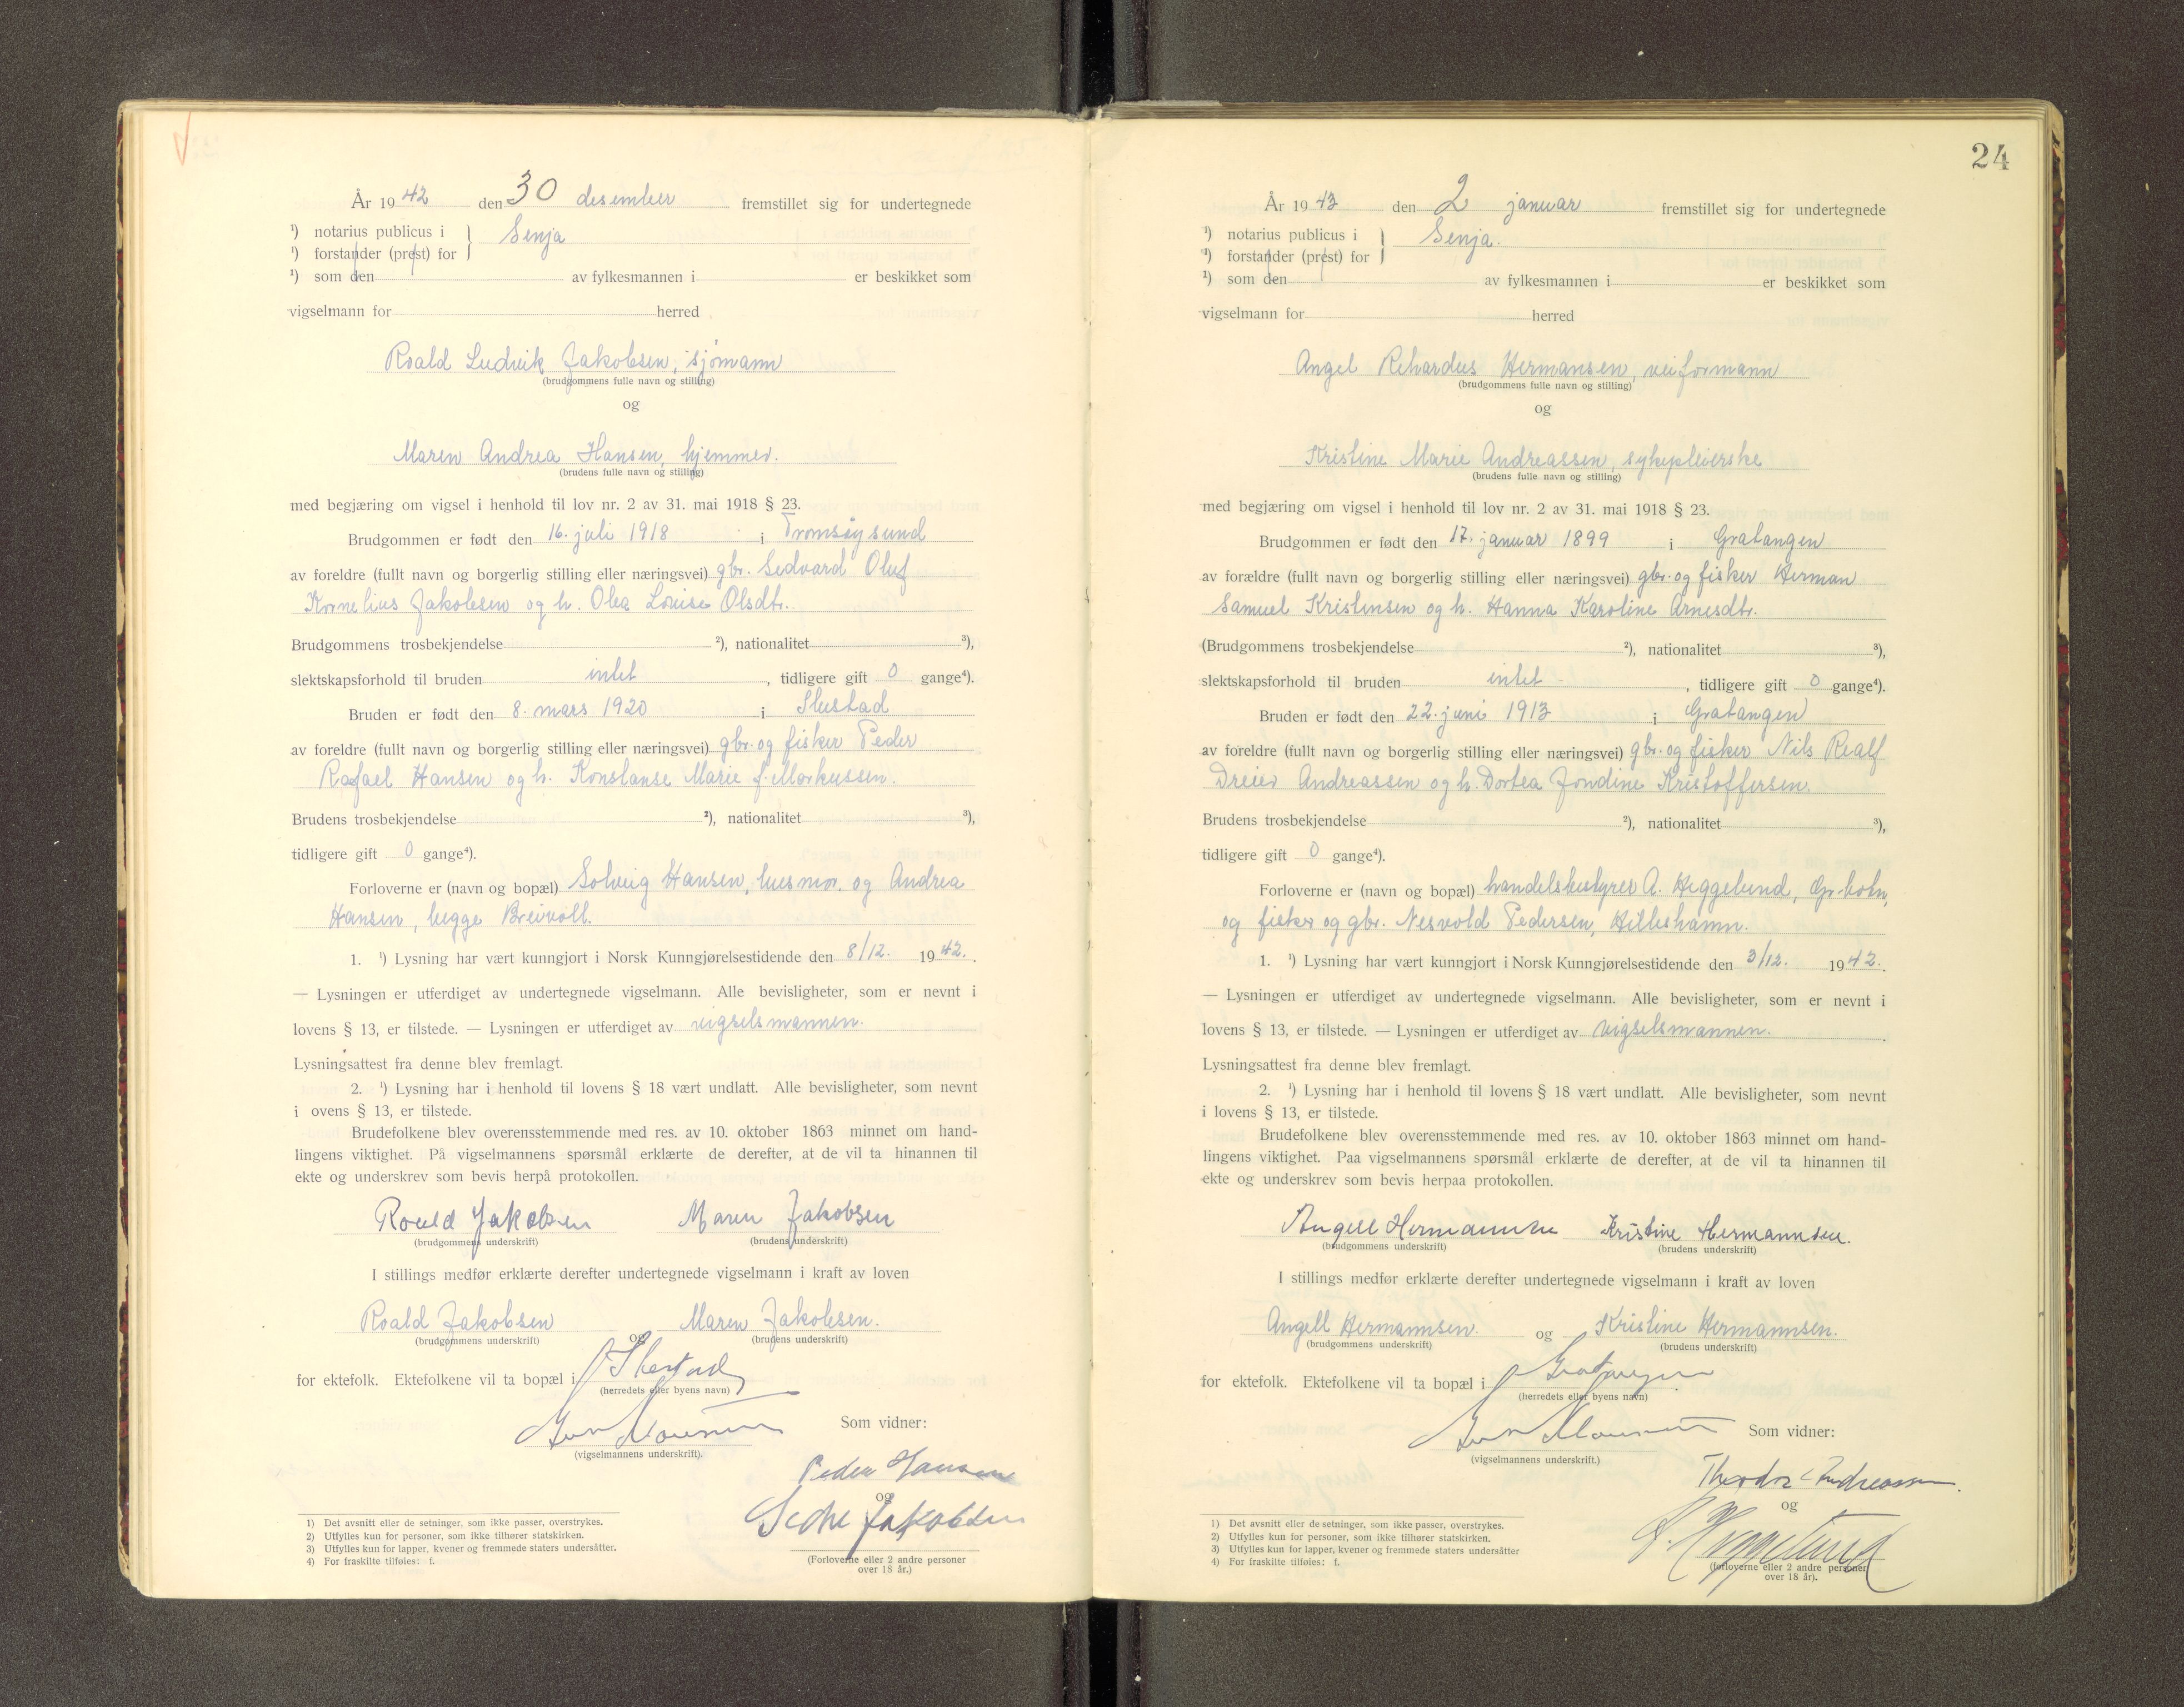 År 1942 den 30 desember fremstillet sig for undertegnede
¹) notarius publicus i } Senja
¹) forstander (prest) for
¹) som den av fylkesmannen i er beskikket som
vigselmann for herred
Roald Ludvik Jakobsen, sjømann
(brudgommens fulle navn og stilling)
og
Maren Andrea Hansen, hjemmev.
(brudens fulle navn og stilling)
med begjæring om vigsel i henhold til lov nr. 2 av 31. mai 1918 § 23.
Brudgommen er født den 16. juli 1918 i Tromsøysund
av foreldre (fullt navn og borgerlig stilling eller næringsvei) gbr. Sedvard Oluf
Kornelius Jakobsen og h. Olea Lovise Olsdtr.
Brudgommens trosbekjendelse ²), nationalitet ³),
slektskapsforhold til bruden intet, tidligere gift 0 gange⁴).
Bruden er født den 8. mars 1920 i
av foreldre (fullt navn og borgerlig stilling eller næringsvei) gbr. og fisker Peder
Rafael Hansen og h. Konstanse Marie f. Markussen.
Brudens trosbekjendelse ²), nationalitet ³),
tidligere gift 0 gange⁴).
Forloverne er (navn og bopæl) Solveig Hansen, husmor, og Andrea
Hansen, begge Breivoll.
1. ¹) Lysning har vært kunngjort i Norsk Kunngjørelsestidende den 8/12. 1942.
— Lysningen er utferdiget av undertegnede vigselmann. Alle bevisligheter, som er nevnt i
lovens § 13, er tilstede. — Lysningen er utferdiget av vigselsmannen.
Lysningsattest fra denne blev fremlagt.
2. ¹) Lysning har i henhold til lovens § 18 vært undlatt. Alle bevisligheter, som nevnt
i ovens § 13, er tilstede.
Brudefolkene blev overensstemmende med res. av 10. oktober 1863 minnet om hand-
lingens viktighet. På vigselmannens spørsmål erklærte de derefter, at de vil ta hinannen til
ekte og underskrev som bevis herpå protokollen.
Roald Jakobsen Maren Jakobsen
(brudgommens underskrift) (brudens underskrift)
I stillings medfør erklærte derefter undertegnede vigselmann i kraft av loven
Roald Jakobsen og Maren Jakobsen.
(brudgommens underskrift) (brudens underskrift)
for ektefolk. Ektefolkene vil ta bopæl i Ibestad
(herredets eller byens navn)
Som vidner:
(vigselmannens underskrift).
Peder Hansen
og
Jakobsen
(Forloverne eller 2 andre personer
over 18 år.)
1) Det avsnitt eller de setninger, som ikke passer, overstrykes.
2) Utfylles kun for personer, som ikke tilhører statskirken.
3) Utfylles kun for lapper, kvener og fremmede staters undersåtter.
4) For fraskilte tilføies: f.
24
År 1943 den 2 januar fremstillet sig for undertegnede
¹) notarius publicus i } Senja.
¹) forstander (prest) for
¹) som den av fylkesmannen i er beskikket som
vigselmann for herred
Angel Rihardus Hermansen, veiformann
(brudgommens fulle navn og stilling)
og
Kristine Marie Andreassen, sykepleierske
(brudens fulle navn og stilling)
med begjæring om vigsel i henhold til lov nr. 2 av 31. mai 1918 § 23.
Brudgommen er født den 17. januar 1899 i Gratangen
av forældre (fullt navn og borgerlig stilling eller næringsvei) gbr. og fisker Herman
Samuel Kristensen og h. Hanna Karoline Arnesdtr.
(Brudgommens trosbekjendelse ²), nationalitet ³),
slektskapsforhold til bruden intet, tidligere gift 0 gange⁴).
Bruden er født den 22. juni 1913 i Gratangen
av foreldre (fullt navn og borgerlig stilling eller næringsvei) gbr. og fisker Nils Realf
Dreier Andreassen og h. Dortea Jondine Kristoffersen.
Brudens trosbekjendelse ²), nationalitet ³),
tidligere gift 0 gange⁴).
Forloverne er (navn og bopæl) handelsbestyrer A. Heggelund, Gr.botn,
og fisker og gbr. Nesvold Pedersen, Hilleshamn.
1. ¹) Lysning har vært kunngjort i Norsk Kunngjørelsestidende den 3/12. 1942.
— Lysningen er utferdiget av undertegnede vigselmann. Alle bevisligheter, som er nevnt i
lovens § 13, er tilstede. — Lysningen er utferdiget av vigselsmannen.
Lysningsattest fra denne blev fremlagt.
2. ¹) Lysning har i henhold til lovens § 18 vært undlatt. Alle bevisligheter, som nevnt
i lovens § 13, er tilstede.
Brudefolkene blev overensstemmende med res. av 10. oktober 1863 minnet om hand-
lingens viktighet. Paa vigselmannens spørsmål erklærte de derefter, at de vil ta hinannen til
ekte og underskrev som bevis herpaa protokollen.
Angell Hermannsen Kristine Hermannsen.
(brudgommens underskrift) (brudens underskrift)
I stillings medfør erklærte derefter undertegnede vigselmann i kraft av loven
Angell Hermannsen. og Kristine Hermannsen.
(brudgommens underskrift) (brudens underskrift)
for ektefolk. Ektefolkene vil ta bopæl i Gratangen
(herredets eller byens navn)
Som vidner:
(vigselmannens underskrift.)
Theodor Andreassen
og
A. Heggelund
(forloverne eller 2 andre personer
over 18 år).
1) Det avsnitt eller de setninger, som ikke passer, overstrykes.
2) Utfylles kun for personer, som ikke tilhører statskirken.
3) Utfylles kun for lapper, kvener og fremmede staters undersåtter
4) For fraskilte tilføies: f.